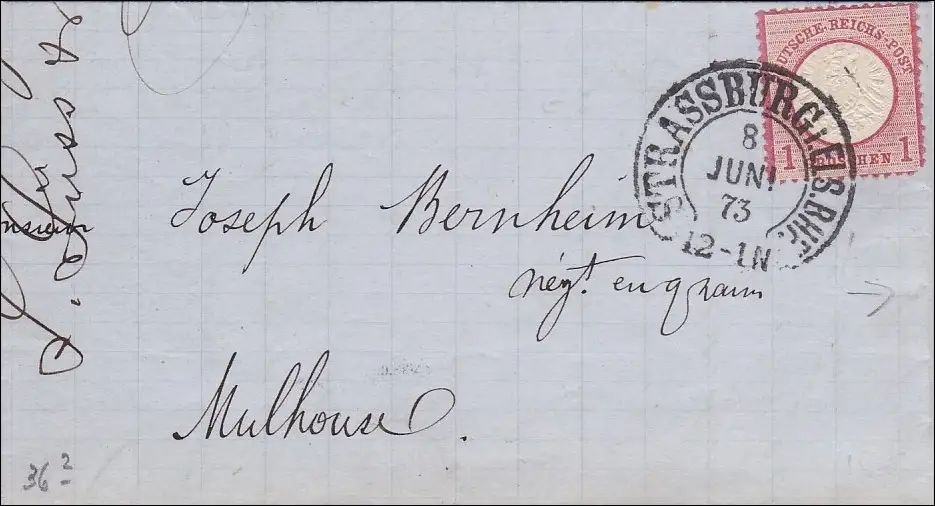 DEUTSCHE REICHS-POST
1 GROSCHEN 1
STRASSBURG i. ELS. BHF.
8
JUNI
73
12-1N
Monsieur Joseph Bernheim
négt. en grains
Mulhouse.
36 2